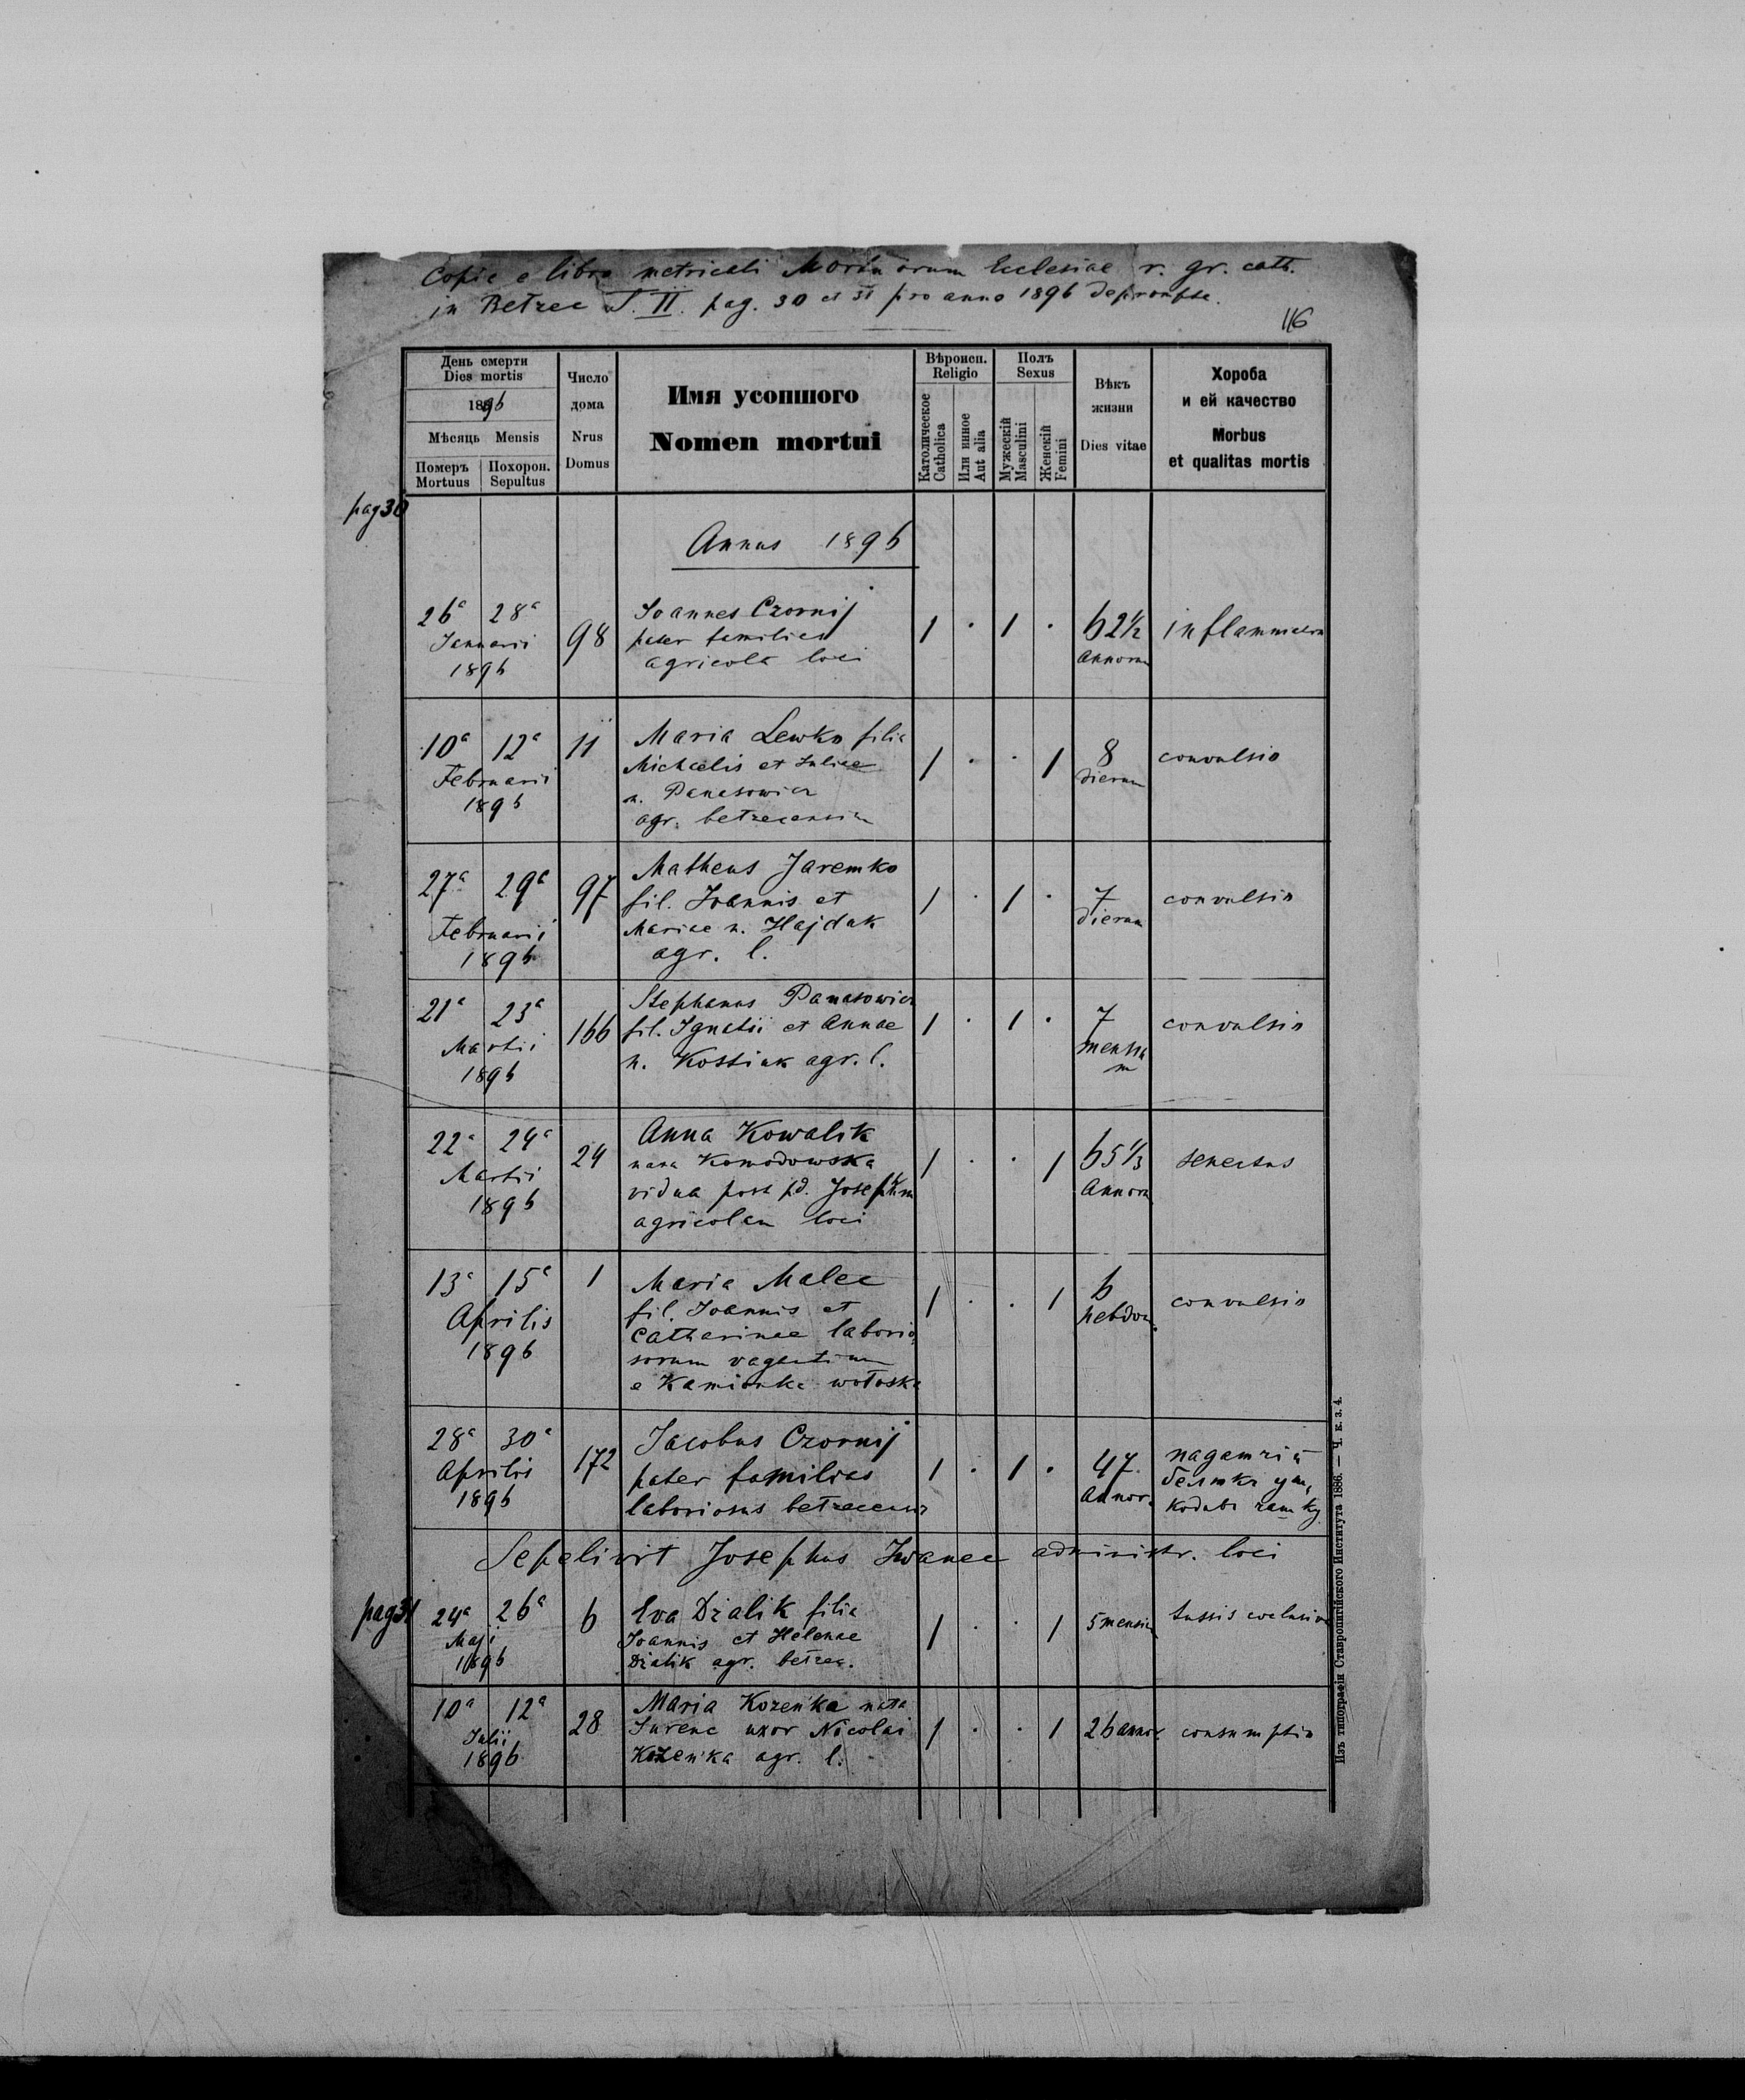 Copia e libro metricali Mortuorum Ecclesiae r. gr. cath.
in Bełzec T. II. pag. 30 et 31 pro anno 1896 deprompta.
116
День смерти
Dies mortis
1896
Мѣсяць Mensis
Померъ Mortuus
Похорон. Sepultus
Число дома
Nrus Domus
Имя усопшого
Nomen mortui
Вѣроисп.
Religio
Католическое
Catholica
Или инное
Aut alia
Полъ
Sexus
Мужескій
Masculini
Женскій
Femini
Вѣкъ жизни
Dies vitae
Хороба
и ей качество
Morbus
et qualitas mortis
pag 30
Annus 1896
26ª 28ª
Januarii
1896
98
Joannes Czornij
pater familias
agricola loci
1 · 1 ·
62½
annorum
10ª 12ª
Februarii
1896
11
Maria Lewko filia
Michaelis et Juliae
n. Panasowicz
agr.
1 · · 1
8
dierum
convulsio
27ª 29ª
Februarii
1896
97
Matheus Jaremko
fil. Joannis et
Mariae n. Hajdak
agr. l.
1 · 1 ·
7
dierum
convulsio
21ª 23ª
Martii
1896
166
Stephanus Panasowicz
fil. Ignatii et Annae
n. Kostiuk agr. l.
1 · 1 ·
7
mensium
convulsio
22ª 24ª
Martii
1896
24
Anna Kowalik
nata Komodowska
vidua post pd. Josephum
agricolam loci
1 · · 1
65⅓
annorum
senectus
13ª 15ª
Aprilis
1896
1
Maria Malec
fil. Joannis et
Catharinae laborio
sorum vagantium
e Kamionka wołoska
1 · · 1
6
hebdom.
convulsio
28ª 30ª
Aprilis
1896
172
Jacobus Czornij
pater familias
laboriosus
1 · 1 ·
47
annor.
Sepelivit Josephus Iwanec administr. loci
pag 31
24ª 26ª
Maji
1896
6
Eva Dzialik filia
Joannis et Helenae
Dzialik agr. bełzec.
1 · · 1
5 mensium
tussis
10ª 12ª
Julii
1896
28
Maria Kozeńka nata
Jurenc uxor Nicolai
Kozeńka agr. l.
1 · · 1
26 annor.
consumptio
Изъ типографіи Ставропигійского Института 1886. — Ч. к. з. 4.